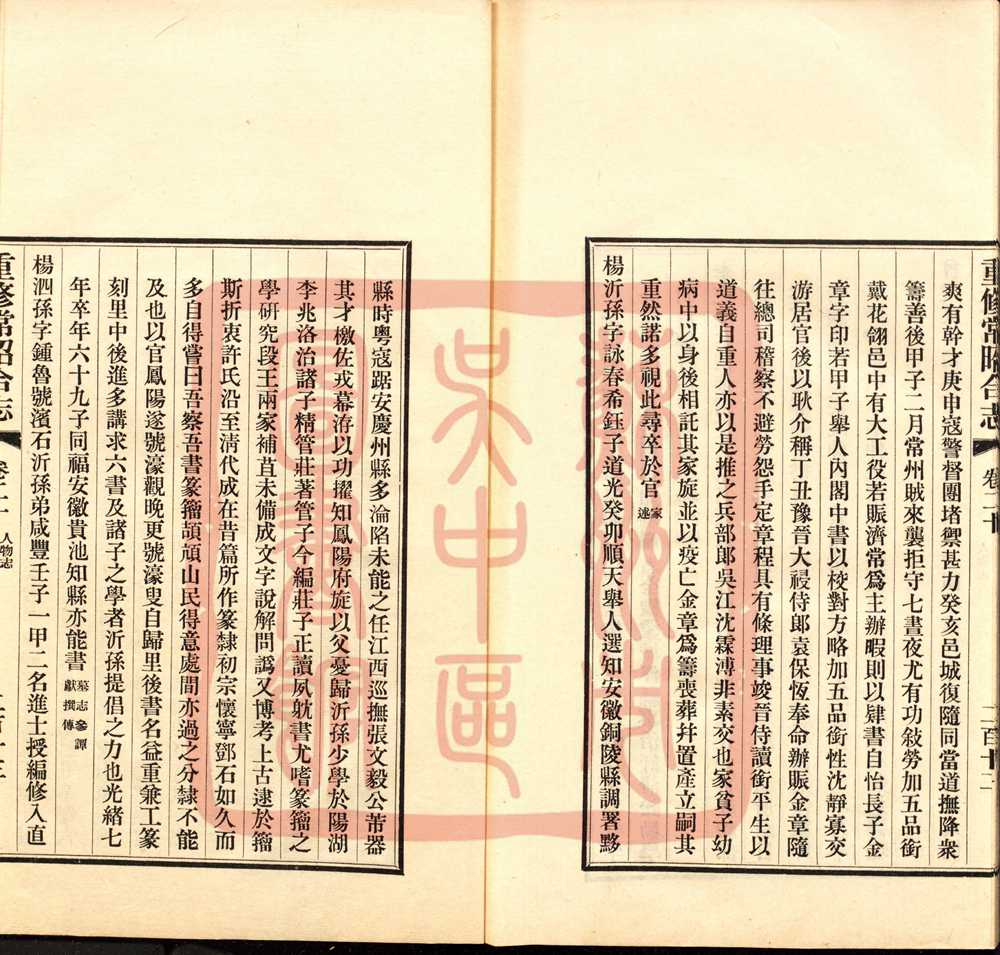 重修常昭合志 卷二十
爽有幹才庚申寇警督團堵禦甚力癸亥邑城復隨同當道撫降衆
籌善後甲子二月常州賊來襲拒守七晝夜尤有功敍勞加五品銜
戴花翎邑中有大工役若賑濟常爲主辦暇則以肄書自怡長子金
章字印若甲子舉人內閣中書以校對方略加五品銜性沈靜寡交
游居官後以耿介稱丁丑豫晉大祲侍郎袁保恆奉命辦賑金章隨
往總司稽察不避勞怨手定章程具有條理事竣晉侍讀銜平生以
道義自重人亦以是推之兵部郎吳江沈霖溥非素交也家貧子幼
病中以身後相託其家旋並以疫亡金章爲籌喪葬幷置產立嗣其
重然諾多視此尋卒於官 家述
楊沂孫字詠春希鈺子道光癸卯順天舉人選知安徽銅陵縣調署黟
縣時粤寇踞安慶州縣多淪陷未能之任江西巡撫張文毅公芾器
其才檄佐戎幕洊以功擢知鳳陽府旋以父憂歸沂孫少學於陽湖
李兆洛治諸子精管莊著管子今編莊子正讀夙躭書尤嗜篆籀之
學研究段王兩家補苴未備成文字說解問譌又博考上古逮於籀
斯折衷許氏沿至淸代成在昔篇所作篆隸初宗懷寧鄧石如久而
多自得嘗曰吾察吾書篆籀頡頏山民得意處間亦過之分隸不能
及也以官鳳陽遂號濠觀晚更號濠叟自歸里後書名益重兼工篆
刻里中後進多講求六書及諸子之學者沂孫提倡之力也光緒七
年卒年六十九子同福安徽貴池知縣亦能書 墓志參譚獻撰傳
楊泗孫字鍾魯號濱石沂孫弟咸豐壬子一甲二名進士授編修入直
重修常昭合志 人物志